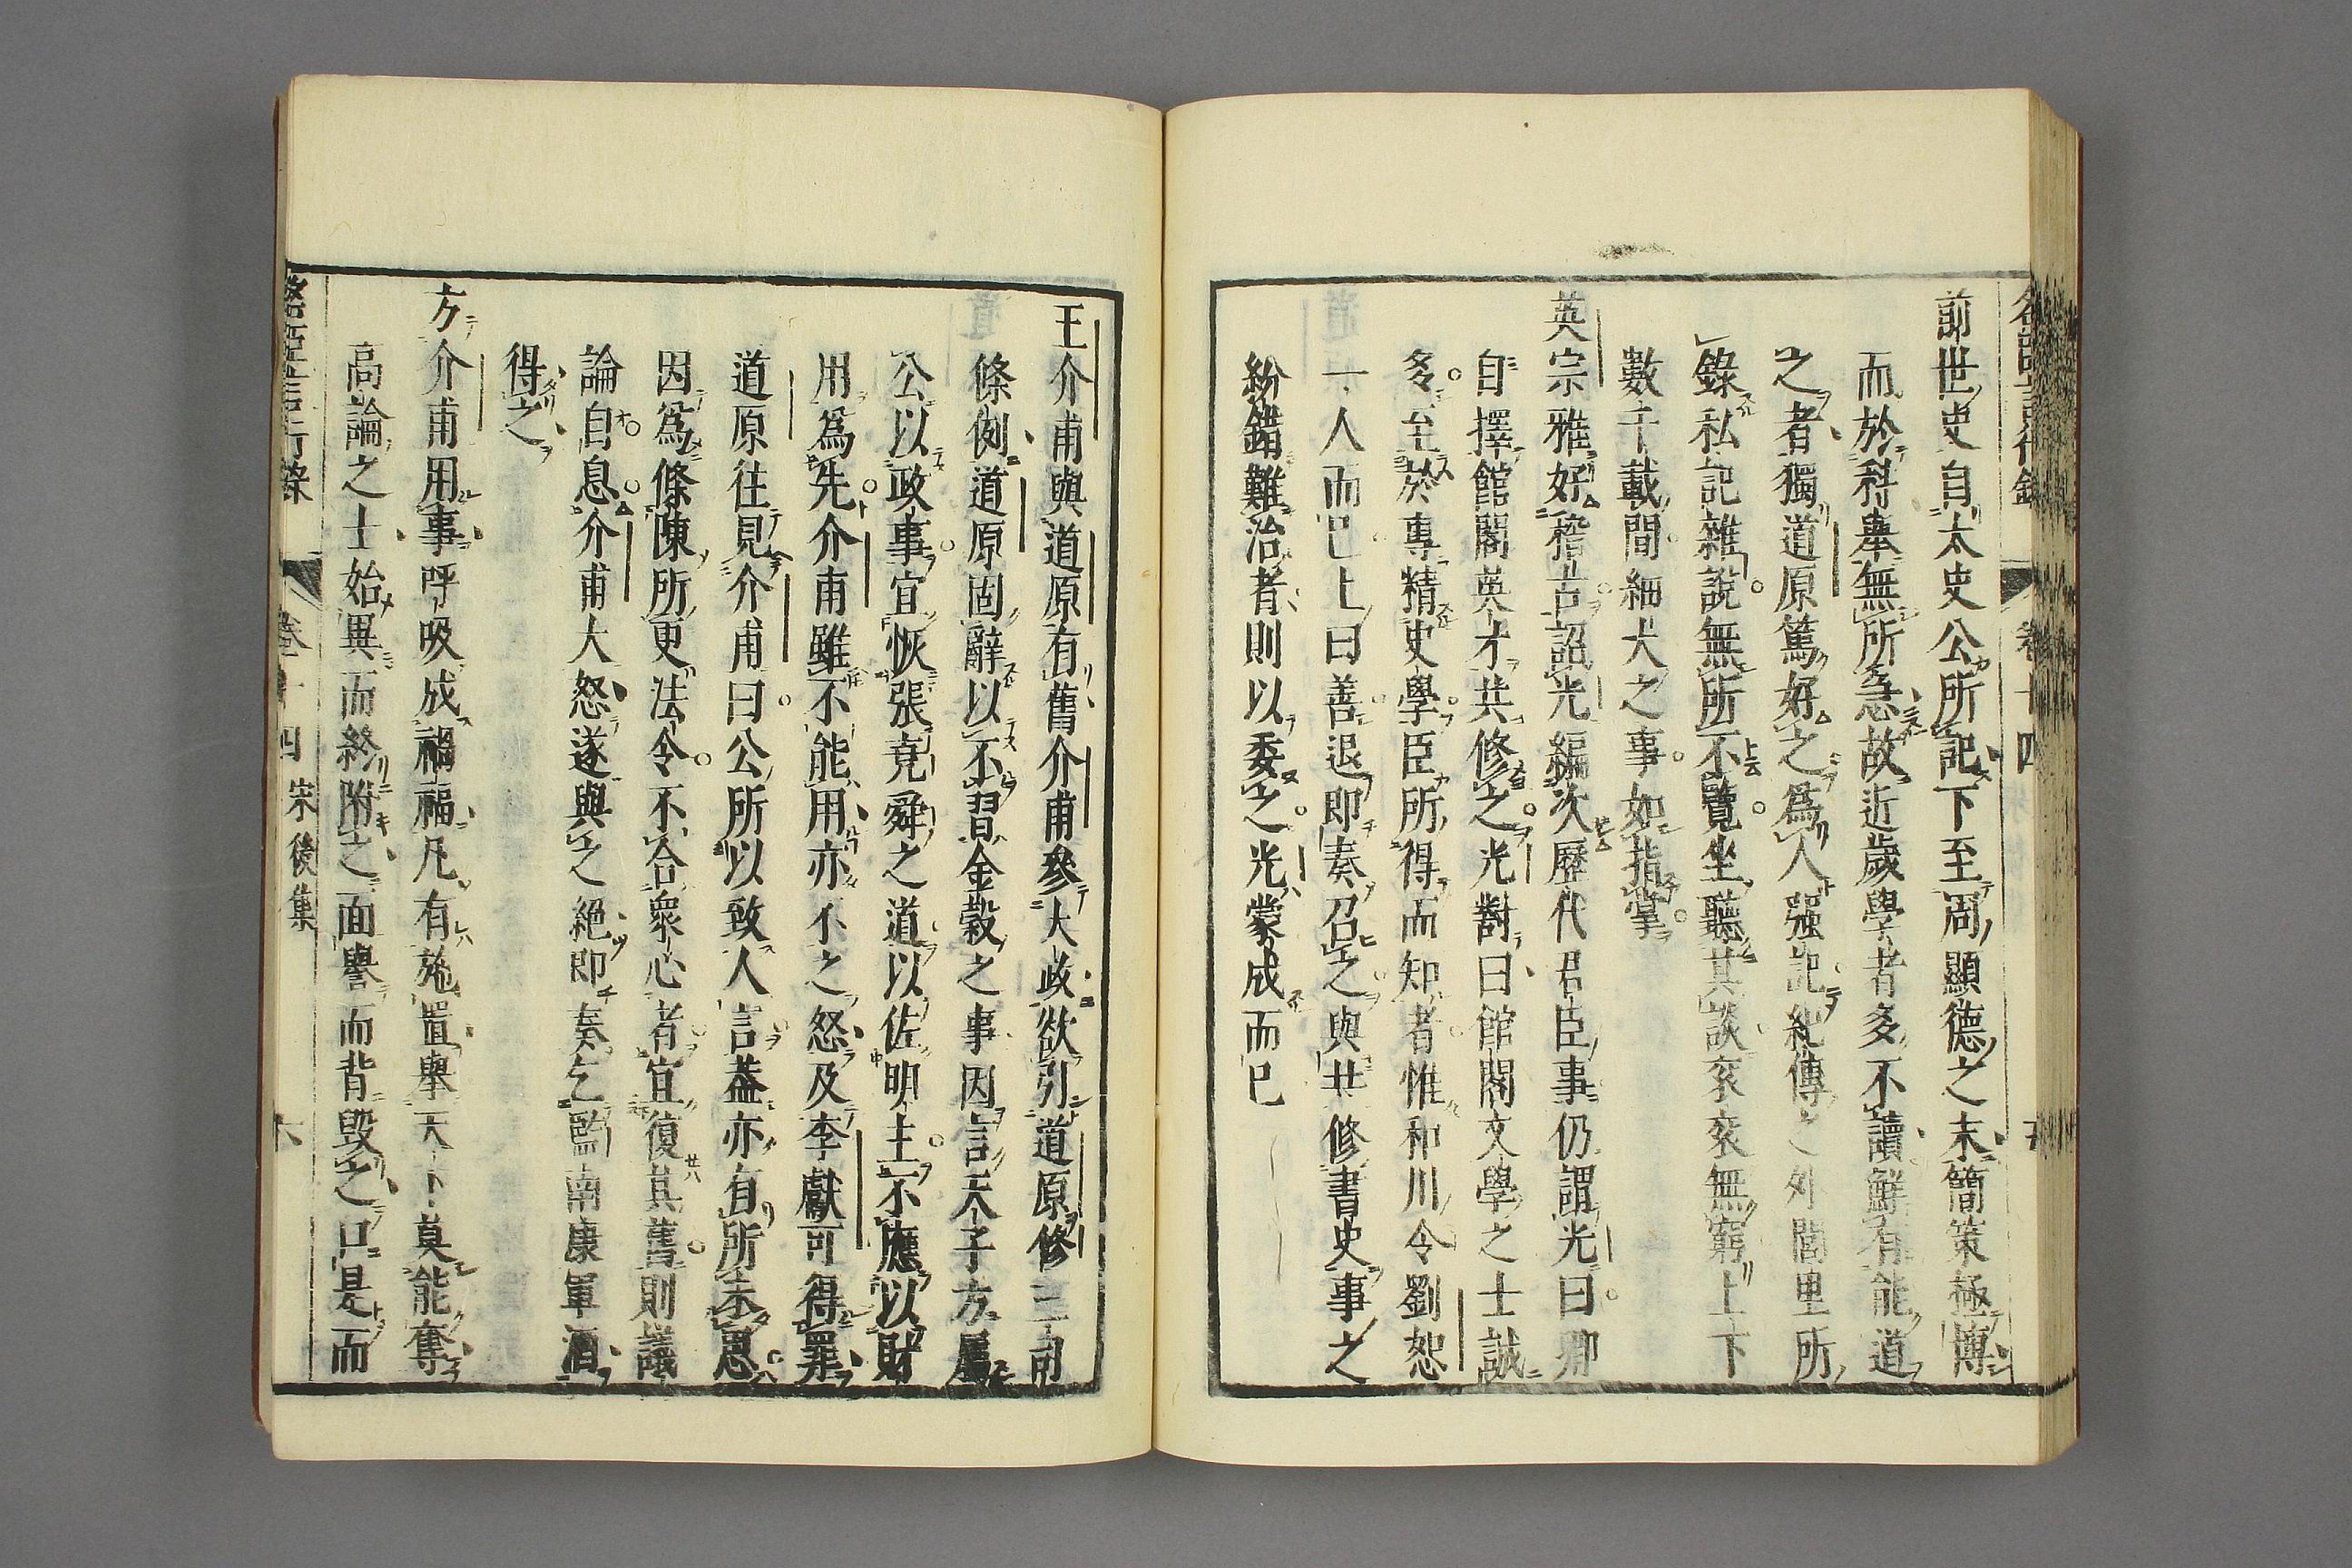 前世史自太史公所記下至周顯德之末簡策極博
而於科舉無所急故近歲學者多不讀鮮有能道
之者獨道原篤好之爲人强記紀傳之外閭里所
錄私記雜說無所不覽坐聽其談衮衮無窮上下
數千載間細大之事如指掌
英宗雅好稽古詔光編次歷代君臣事仍謂光曰卿
自擇館閣英才共修之光對曰館閣文學之士誠
多至於專精史學臣所得而知者惟和川令劉恕
一人而已上曰善退即奏召之與共修書史事之
紛錯難治者則以委之光蒙成而已
王介甫與道原有舊介甫參大政欲引道原修三司
條例道原固辭以不習金穀之事因言天子方屬
公以政事宜恢張堯舜之道以佐明主不應以財
用爲先介甫雖不能用亦不之怒及李獻可得罪
道原往見介甫曰公所以致人言葢亦有所未思
因爲條陳所更法令不合衆心者宜復其舊則議
論自息介甫大怒遂與之絕即奏乞監南康軍酒
得之
方介甫用事呼吸成禍福凡有施置舉天下莫能奪
高論之士始異而終附之面譽而背毁之口是而
卷十四 宋後集
六